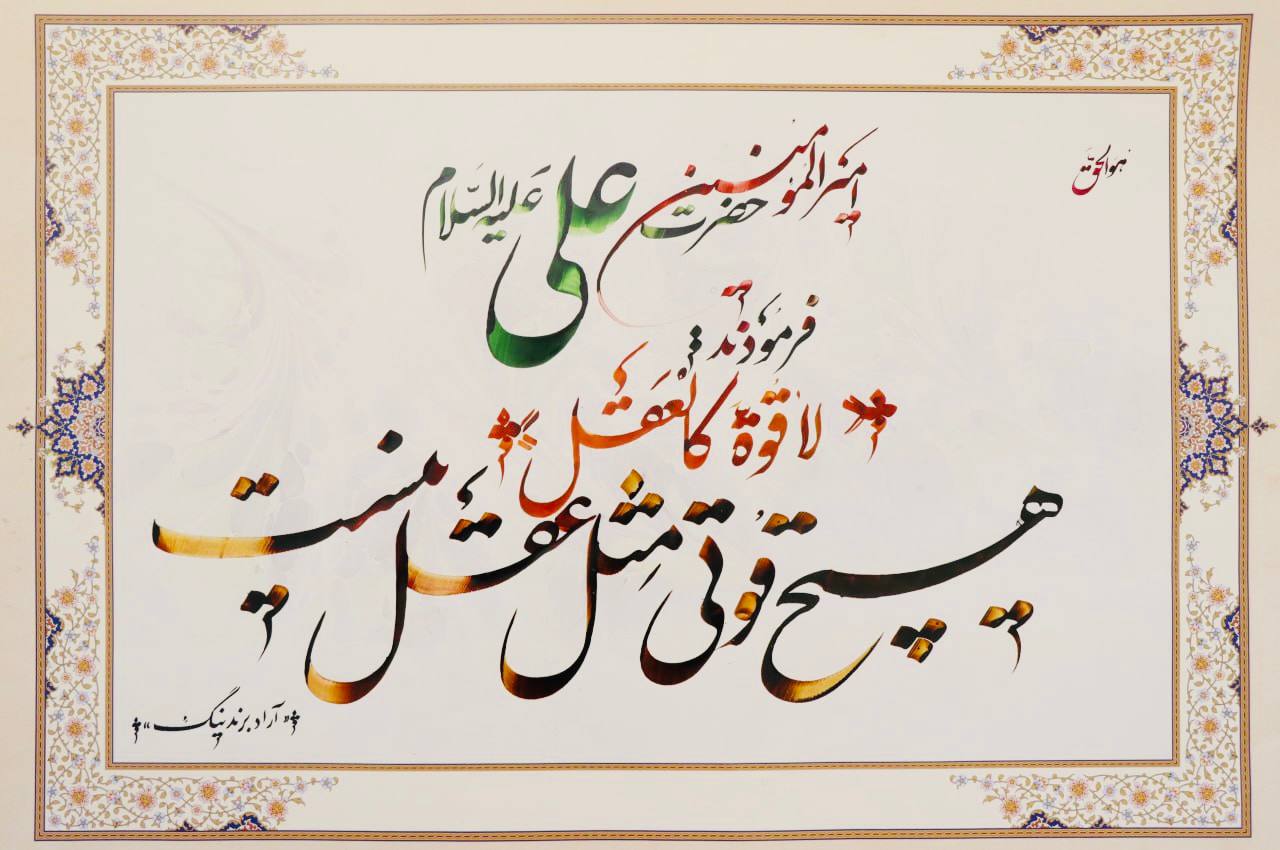 هوالحق
امیرالمؤمنین حضرت علی علیه السلام
فرمودند:
لا قوة کالعقل
هیچ قوتی مثل عقل نیست
«آراد برندینگ»